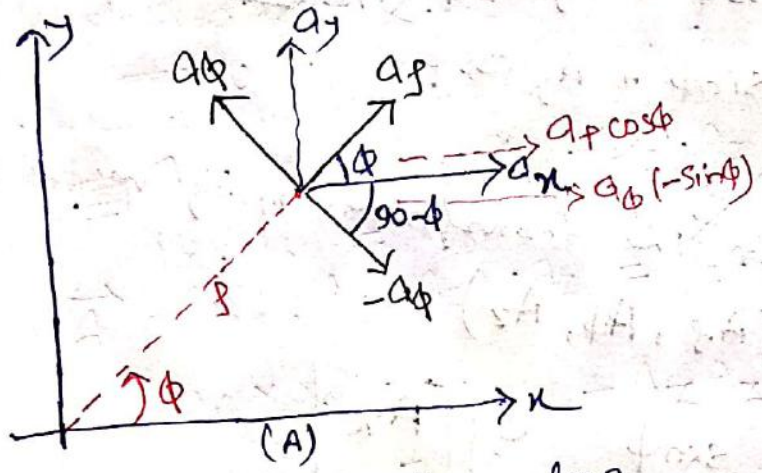 y
ay
aϕ
aρ
aρ cosϕ
ϕ
ax
aϕ (-sinϕ)
90-ϕ
-aϕ
ρ
ϕ
x
(A)